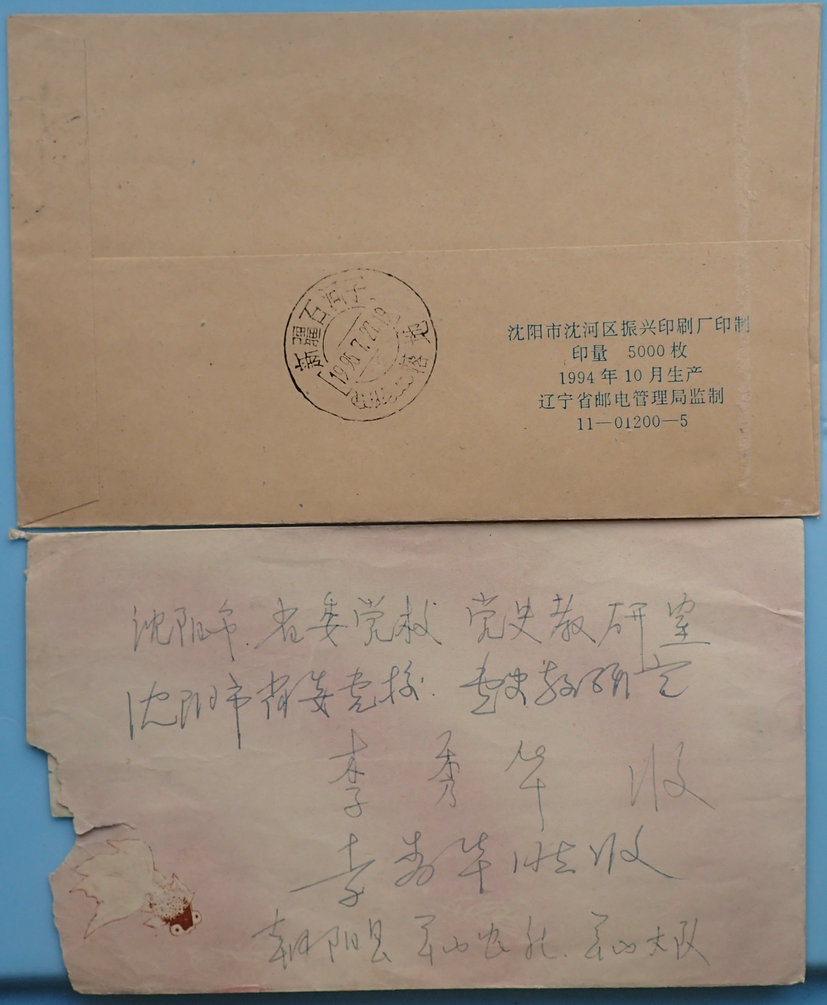 新疆石河子
1995.7.27.19
沈阳市沈河区振兴印刷厂印制
印量 5000枚
1994年10月生产
辽宁省邮电管理局监制
11—01200—5
沈阳市.省委党校 党史教研室
沈阳市省委党校. 党史教研室
李 秀 华 收
李秀华 收
朝阳县 大队